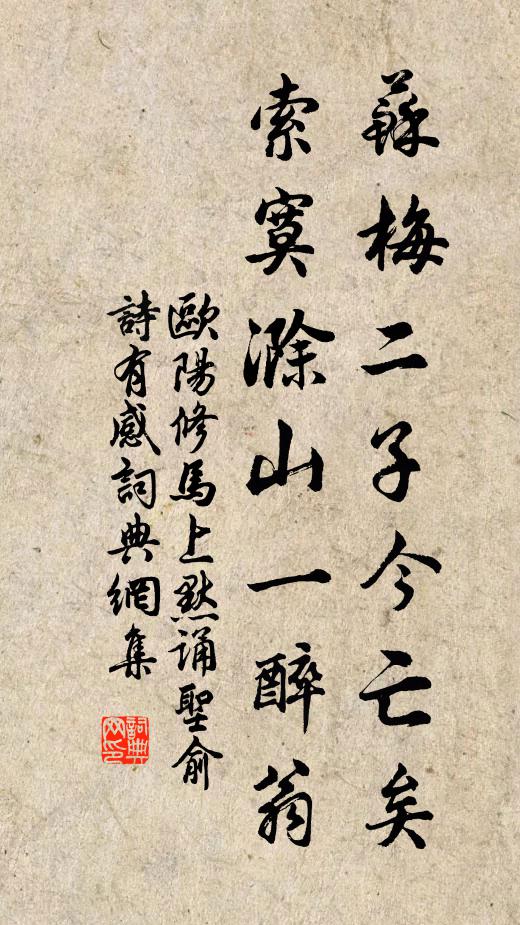 蘇梅二子今亡矣
索寞滁山一醉翁
歐陽修馬上默誦聖俞
詩有感詞典網集
詞典
网印